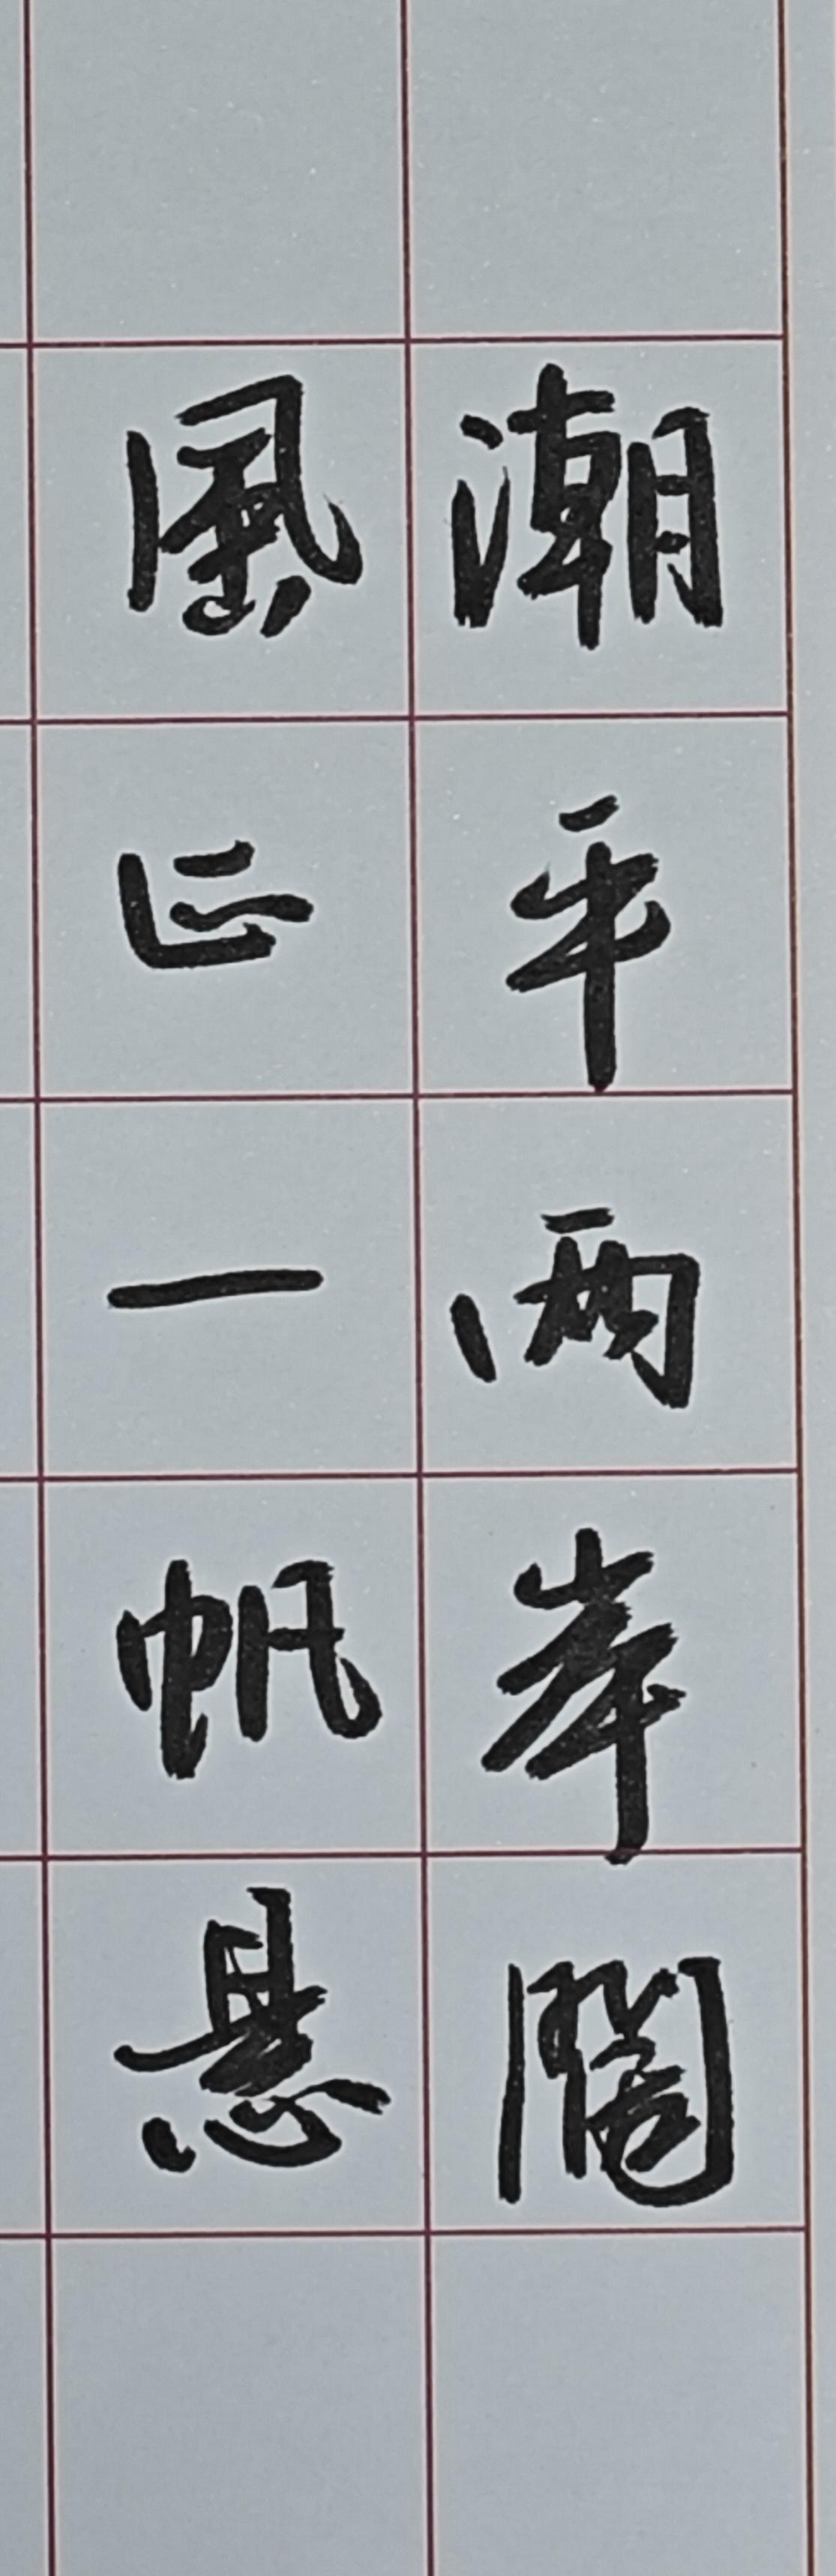 潮平两岸闊
風正一帆悬